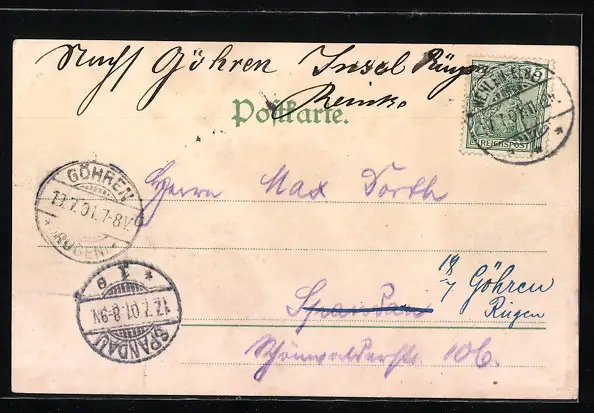 Nach Göhren Insel Rügen
Reinke
Postkarte.
WEHLEN-ELBE
REICHSPOST
GÖHREN
19.7.01.7-8V.
RÜGEN
Herrn Max Dorth
18/7 Göhren
Rügen
Spandau
Schönwalderstr 106.
17.7.01.8-9N.
SPANDAU